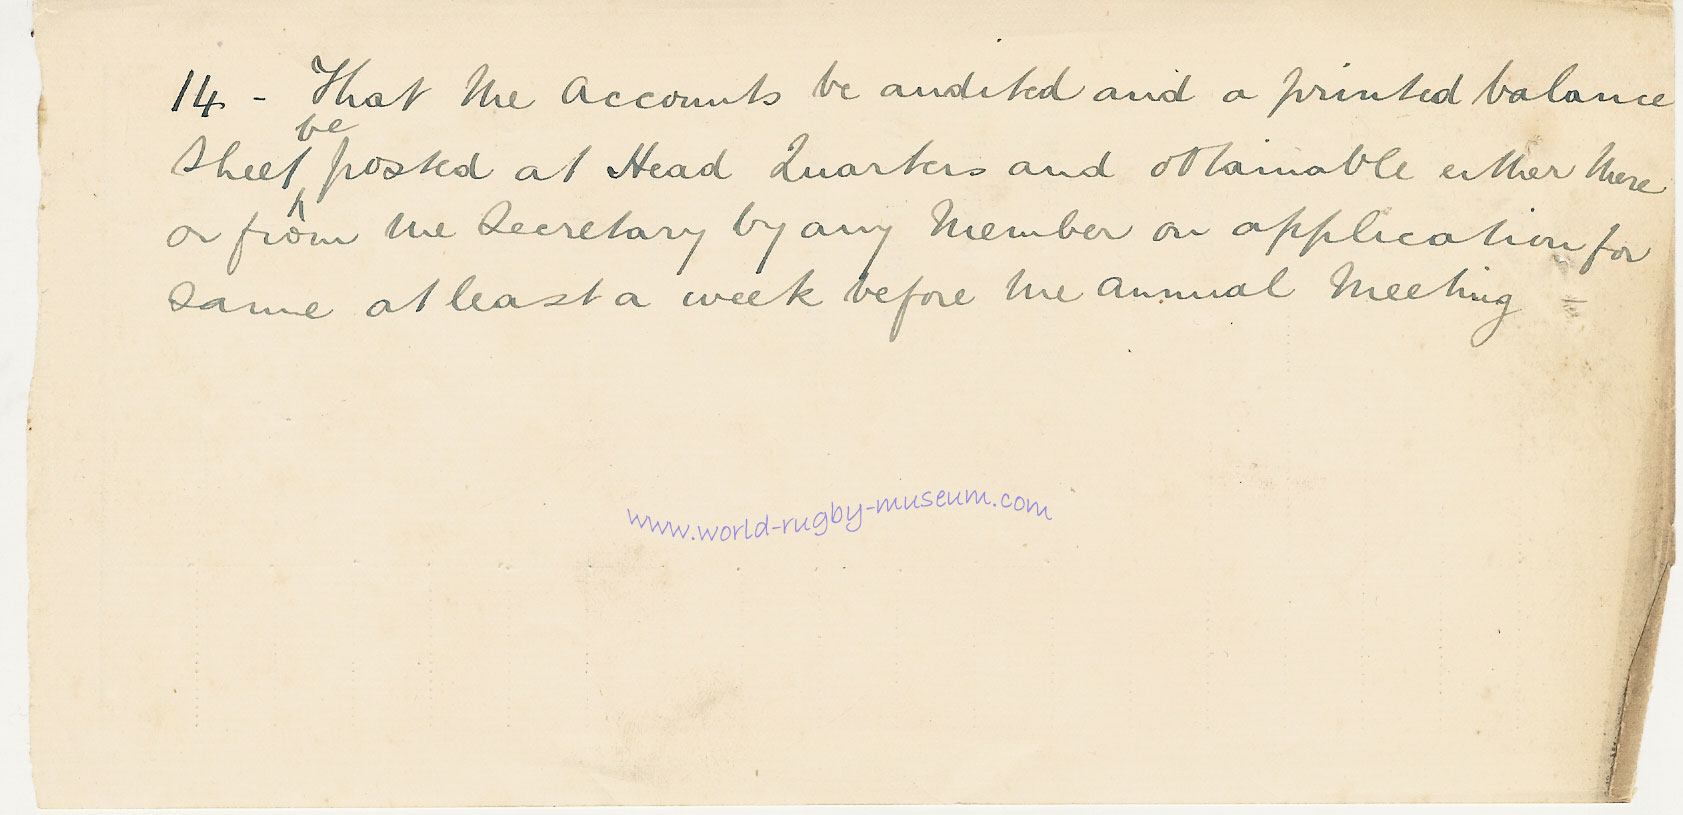 14 - That the Accounts be audited and a printed balance
be
Sheet posted at Head Quarters and obtainable either there
or from the Secretary by any Member on application for
same at least a week before the Annual Meeting
www.world-rugby-museum.com